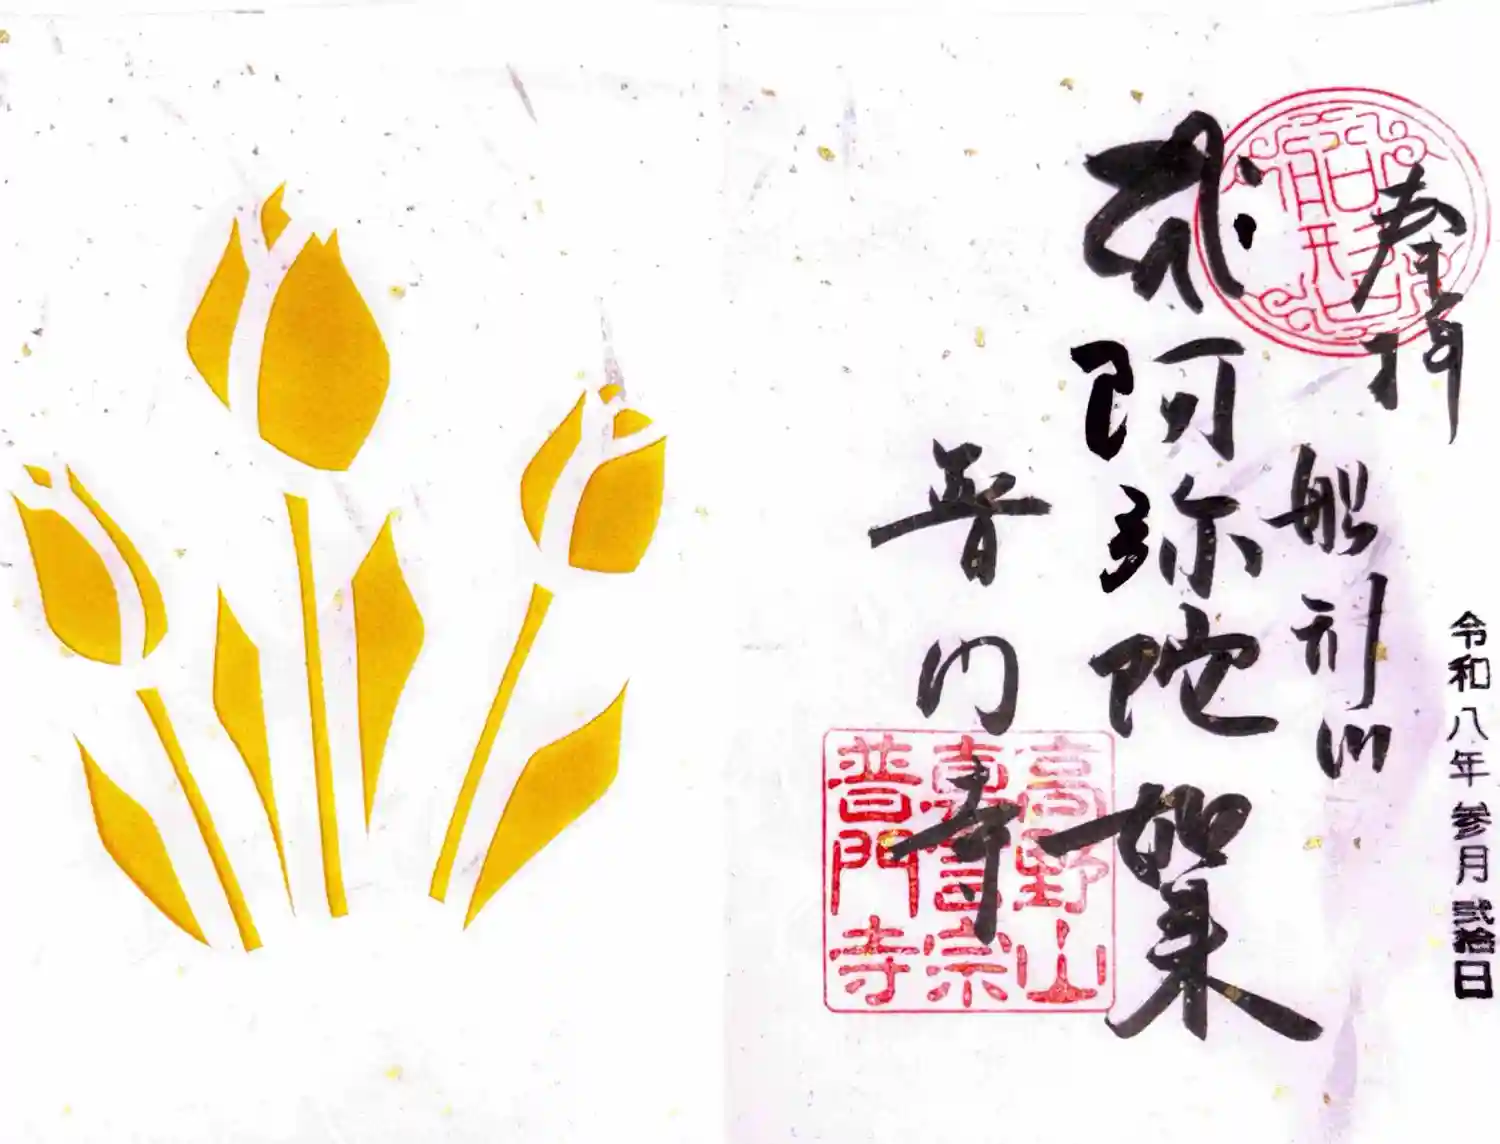 奉拝
船形山
令和八年参月弐拾日
阿弥陀如来
普門寺
高野山
真言宗
普門寺